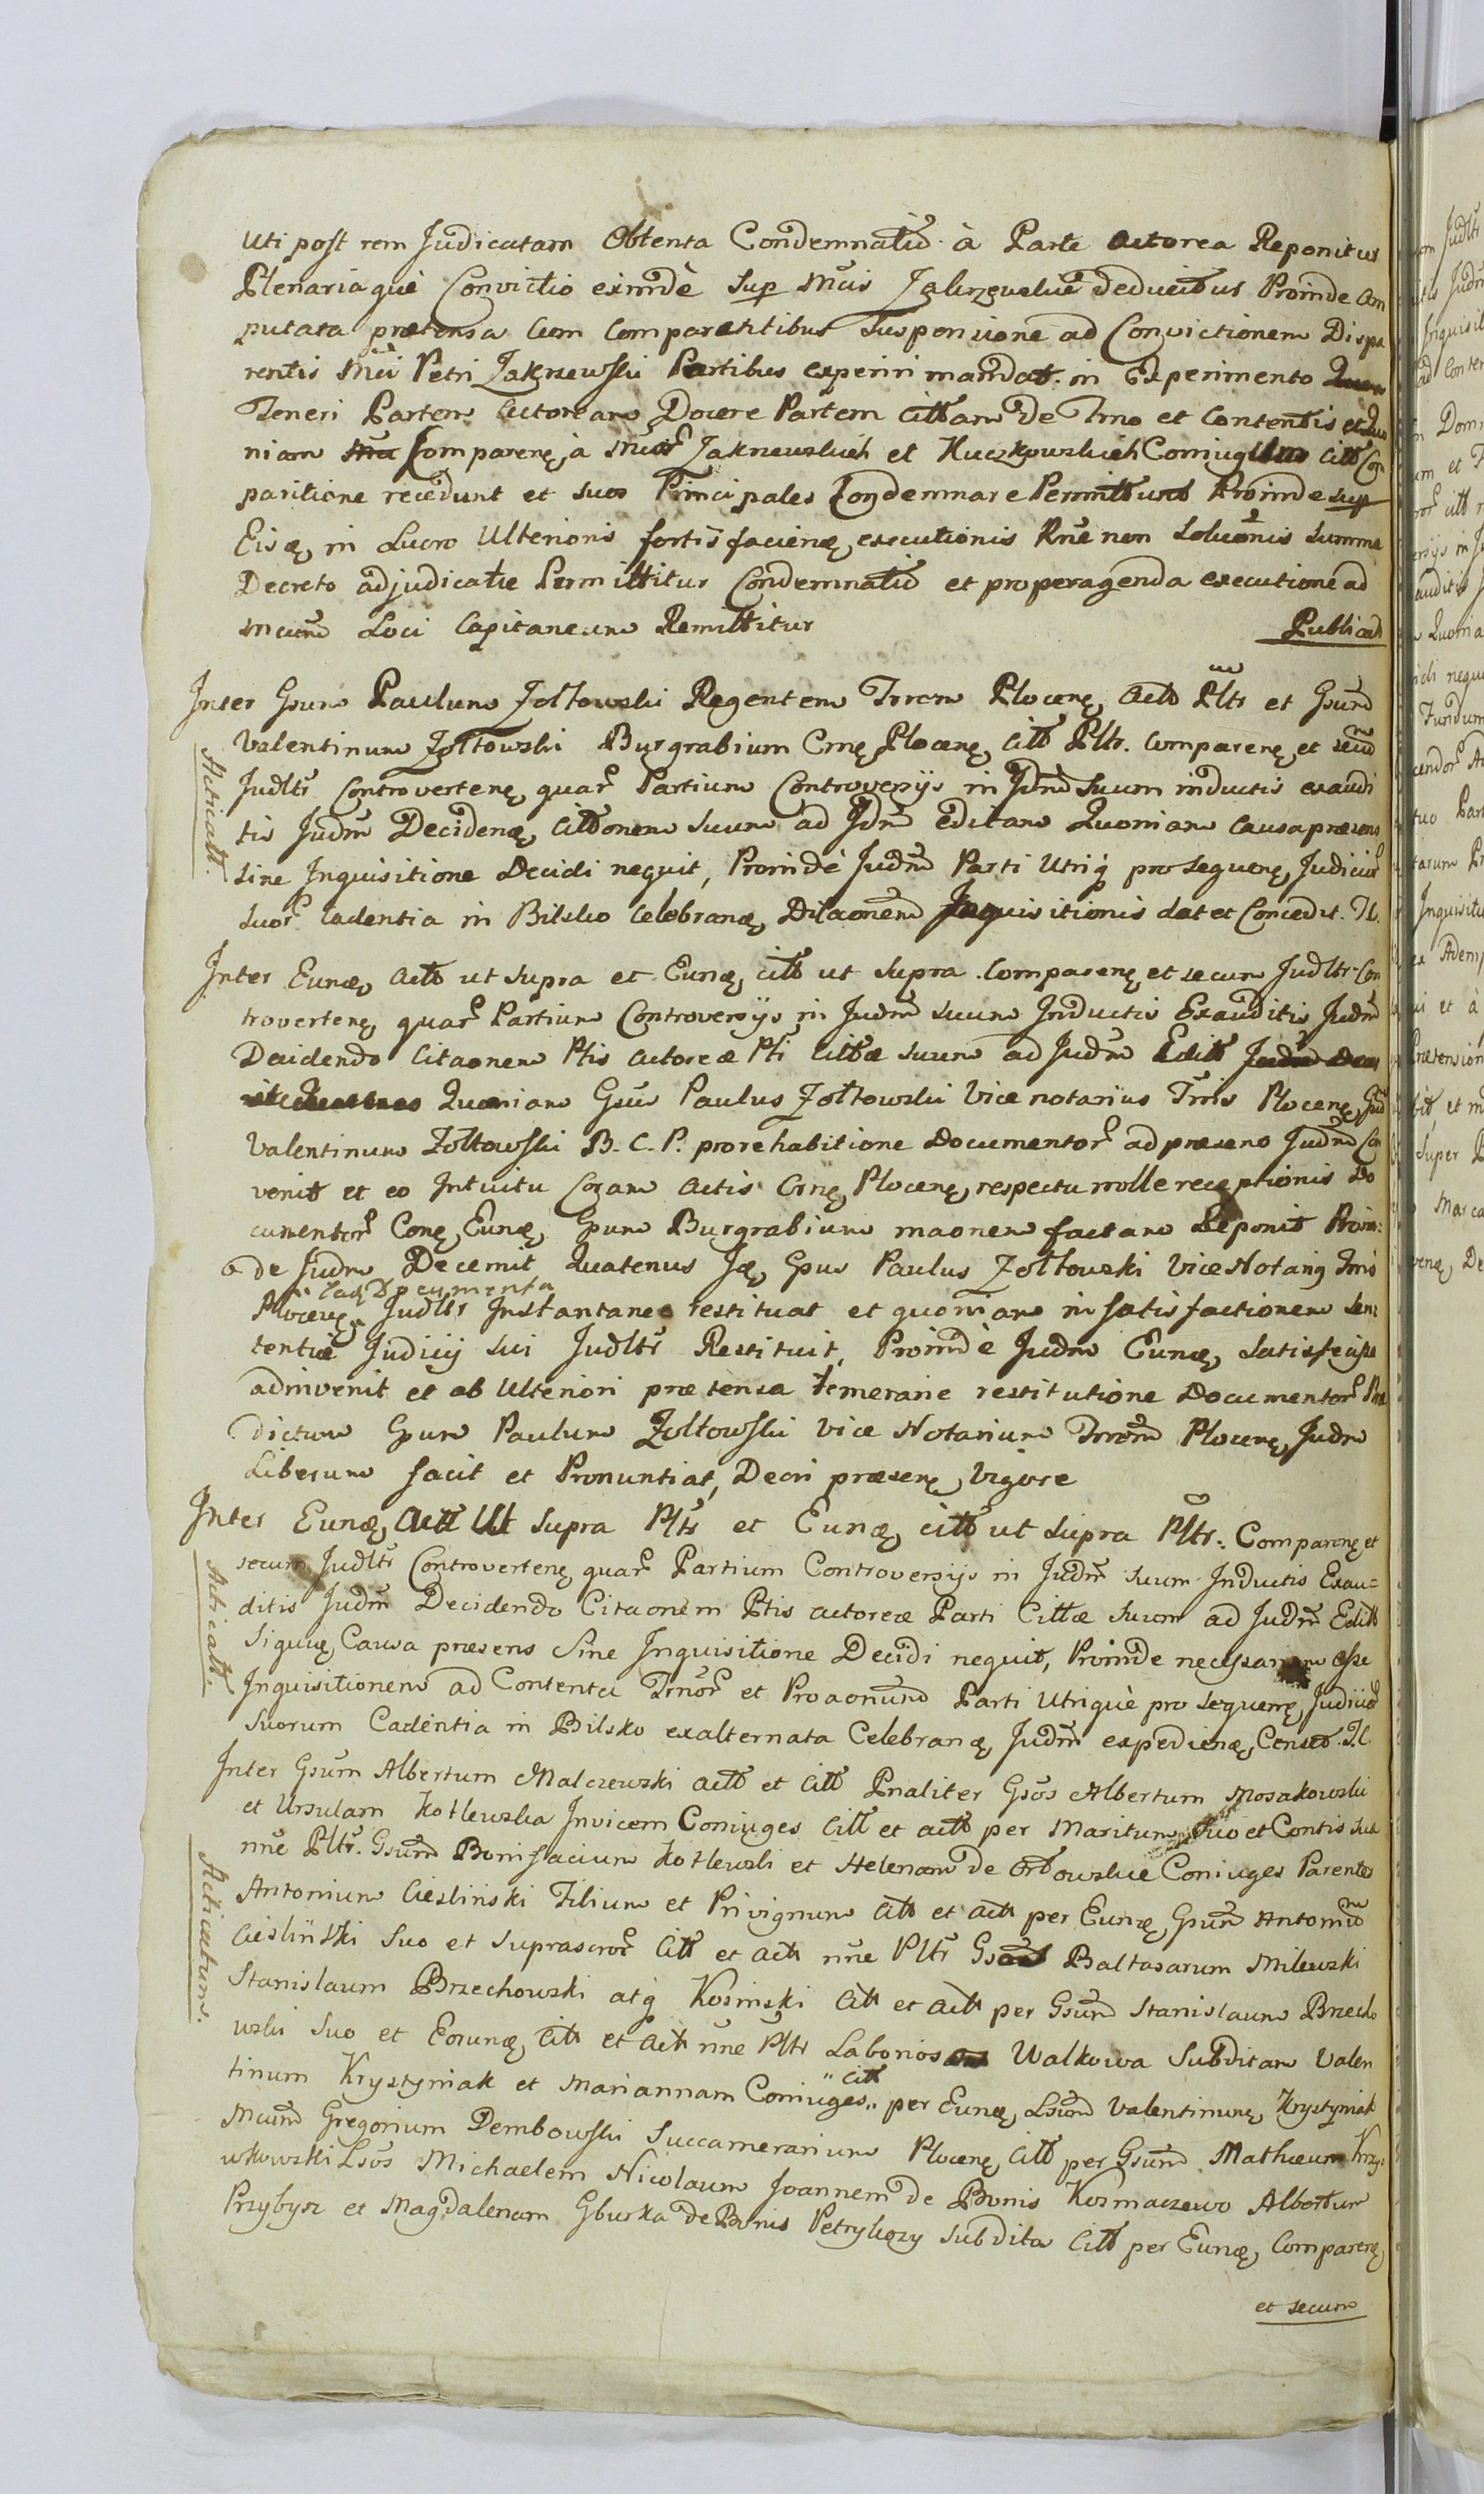 Uti post rem Judicatam Obtenta Condemnatio à Parte Actorea Reponitur
Plenariaquè Convictio eximdè sup Mcis Zakrzewskie deducitur Proinde Com
putata prætensa cum Comparentibus Susponsione ad Convictionem Dispa
rentis Mci Petri Zakrzewski Partibus experiri mandat. in Experimento
Teneri Partem Actoream Docere Partem Cittam De Tmo et Contentis et Quo
niam Comparenę, à Mcor Zakrzewskich et Kuczkowskich Coniugum citt Com
paritione recedunt et suos Principales Condemnare Permittunt Proinde sup
Eisdę, in Lucro Ulterioris fortis facienę, executionis Rnę non Soluonis Summæ
Decreto adjudicatæ Permittitur Condemnatio et pro peragenda executione ad
Mcum Loci Capitaneum Remittitur
Publicat
Inter Gsum Paulum Zołtowski Regentem Trrem Plocenę, Actt Pltr et Gsum
Valentinum Zołtowski Burgrabium Crnę Plocenę, Citt Pltr. Comparenę, et secum
Judltr Controvertenę, quar Partium Controversijs in Jdm Suum inductis exaudi
tis Judm Decidenę, Cittonem Suum ad Jdm editam Quoniam Causa præsens
sine Inquisitione Decidi nequit, Proindè Judm Parti Utriq prosequenę, Judicior
Suor Cadentia in Bilsko Celebranę, Dilaonem Inquisitionis dat et Concedit. Il.
Acticatt.
Inter Eunę, Actt ut Supra et Eunę, citt ut Supra Comparenę, et secum Judltr Con
trovertenę, quar Partium Controversijs in Judm suum Inductis Exauditis Judm
Decidendo Citaonem Ptis Actoreæ Pti Cittæ Suum ad Judm Editt
Quoniam Gsus Paulus Zołtowski Vice notarius Trris Plocenę, Gsum
Valentinum Zołtowski B. C. P. pro rehabitione Documentor ad præsens Judm Con
venit et eo Intuitu Coram Actis Crnę, Plocenę, respectu nolle receptionis Do
cumentor Conę, Eunę, Gsum Burgrabium maonem factam Reponit Proin:
de Judm Decernit Quatenus Idę, Gsus Paulus Zołtowski Vice Notariq Trris
Eadę Documenta
Plocenę, Judltr Instantanee restituat et quoniam in satisfactionem Sen:
tentiæ Judicij sui Judltr Restituit, Proindè Judm Eunę, Satisfecisse
adinvenit et ab Ulteriori prætensa temerarie restitutione Documentor Præ
dictum Gsum Paulum Zołtowski Vice Notarium Trrem Plocenę, Judm
Liberum facit et Pronuntiat, Decri præsenę, vigore
Inter Eunę, Actt Ut Supra Pltr et Eunę, citt ut Supra Pltr. Comparenę, et
secum Judltr Controvertenę, quar Partium Controversijs in Judm suum Inductis Exau=
ditis Judm Decidendo Citaonem Ptis Actoreæ Parti Cittæ Suum ad Judm Editt
Siquię, Causa præsens Sine Inquisitione Decidi nequit, Proinde necessariam esse
Inquisitionem ad Contenta Tmor et Proaonum Parti Utriquè prosequenę, Judicior
Suorum Cadentia in Bilsko exalternata Celebranę, Judm expedienę, Censet. Il.
Acticatt.
Inter Gsum Albertum Malczewski Actt et Citt Pnaliter Gsos Albertum Mosakowski
et Ursulam Kotlewska Invicem Coniuges Citt et actt per Maritum Suo et Contis suæ
nne Pltr. Gsum Bonifacium Kotlewski et Helenam de Orłowskie Coniuges Parentes
Antonium Ciesliński Filium et Privignum Citt et Actt per Eunę, Gsum Antonium
Ciesliński Suo et Suprascror Citt et Actt nne Pltr Gsos Baltasarum Milewski
Stanislaum Brzechowski atq Kosinski Citt et Actt per Gsum Stanislaum Brzecho
wski Suo et Eorunę, Citt et Actt nne Pltr Laboriosam Walkowa Subditam Valen
tinum Krystyniak et Mariannam Coniuges citt per Eunę, Lsum Valentinum, Krystyniak
Mcum Gregorium Dembowski Succamerarium Plocenę, Citt per Gsum Mathæum Krzy
wkowski Lsos Michaelem Nicolaum Joannem de Bonis Kosmaczewo Albertum
Przybysz et Magdalenam Gburka de Bonis Petrykozy Subditos Citt per Eunę, Comparenę,
Acticatum.
et secum